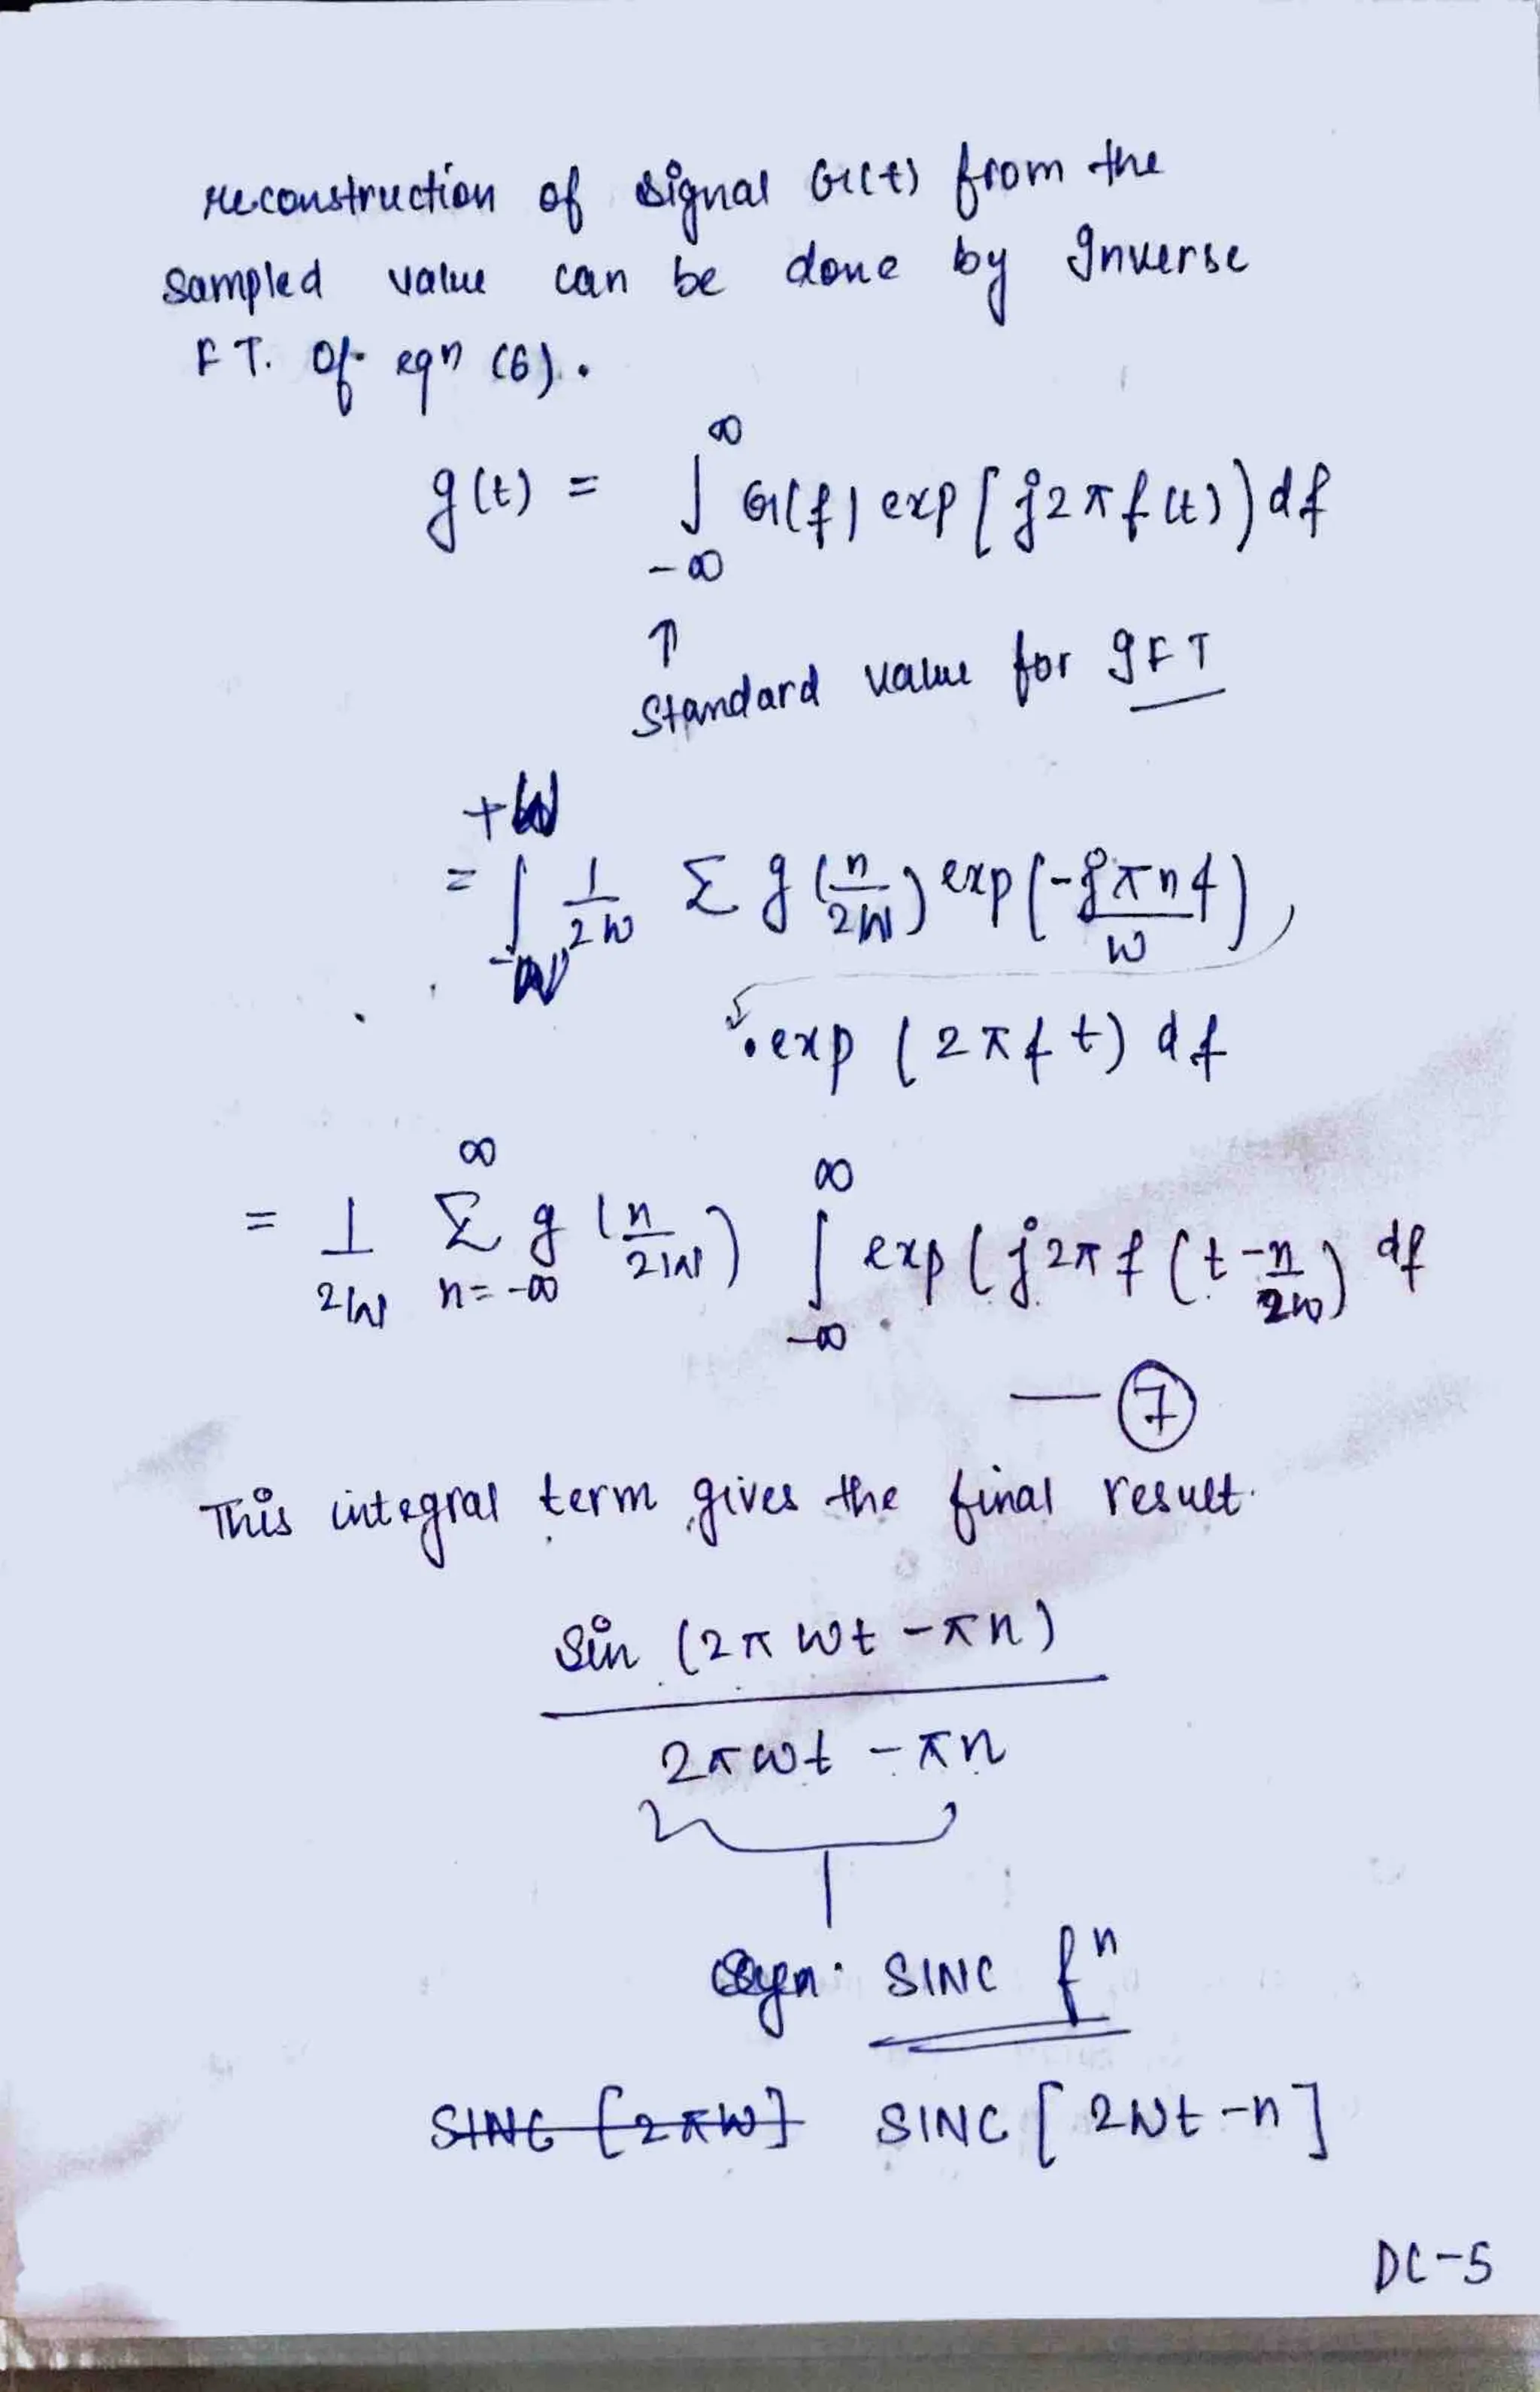 reconstruction of signal G(t) from the
sampled value can be done by Inverse
F T. Of eqn (6).
g(t) = ∫_{-∞}^{∞} G(f) exp [j2πf(t)) df
↑
Standard value for IFT
= ∫_{-W}^{+W} 1/2W Σ g (n/2W) exp (-jπnf/W)
.exp (2πft) df
= 1/2W Σ_{n=-∞}^{∞} g (n/2W) ∫_{-∞}^{∞} exp (j2πf (t-n/2W) df
— 7
This integral term gives the final result.
Sin (2πWt - πn)
2πWt - πn
SINC fn
SINC [2πW] SINC [2Wt-n]
DC-5